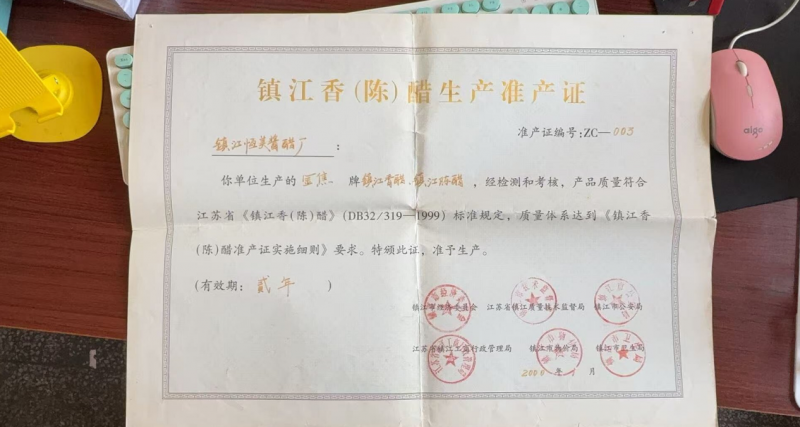 镇江香(陈)醋生产准产证
准产证编号:ZC—003
镇江恒美酱醋厂:
你单位生产的 牌镇江香醋、镇江陈醋,经检测和考核,产品质量符合
江苏省《镇江香(陈)醋》(DB32/319—1999)标准规定,质量体系达到《镇江香
(陈)醋准产证实施细则》要求。特颁此证,准予生产。
(有效期: 贰年 )
镇江市经济委员会 江苏省镇江质量技术监督局 镇江市公安局
江苏省镇江工商行政管理局 镇江市 局 镇江市卫生局
2000年 月
aigo